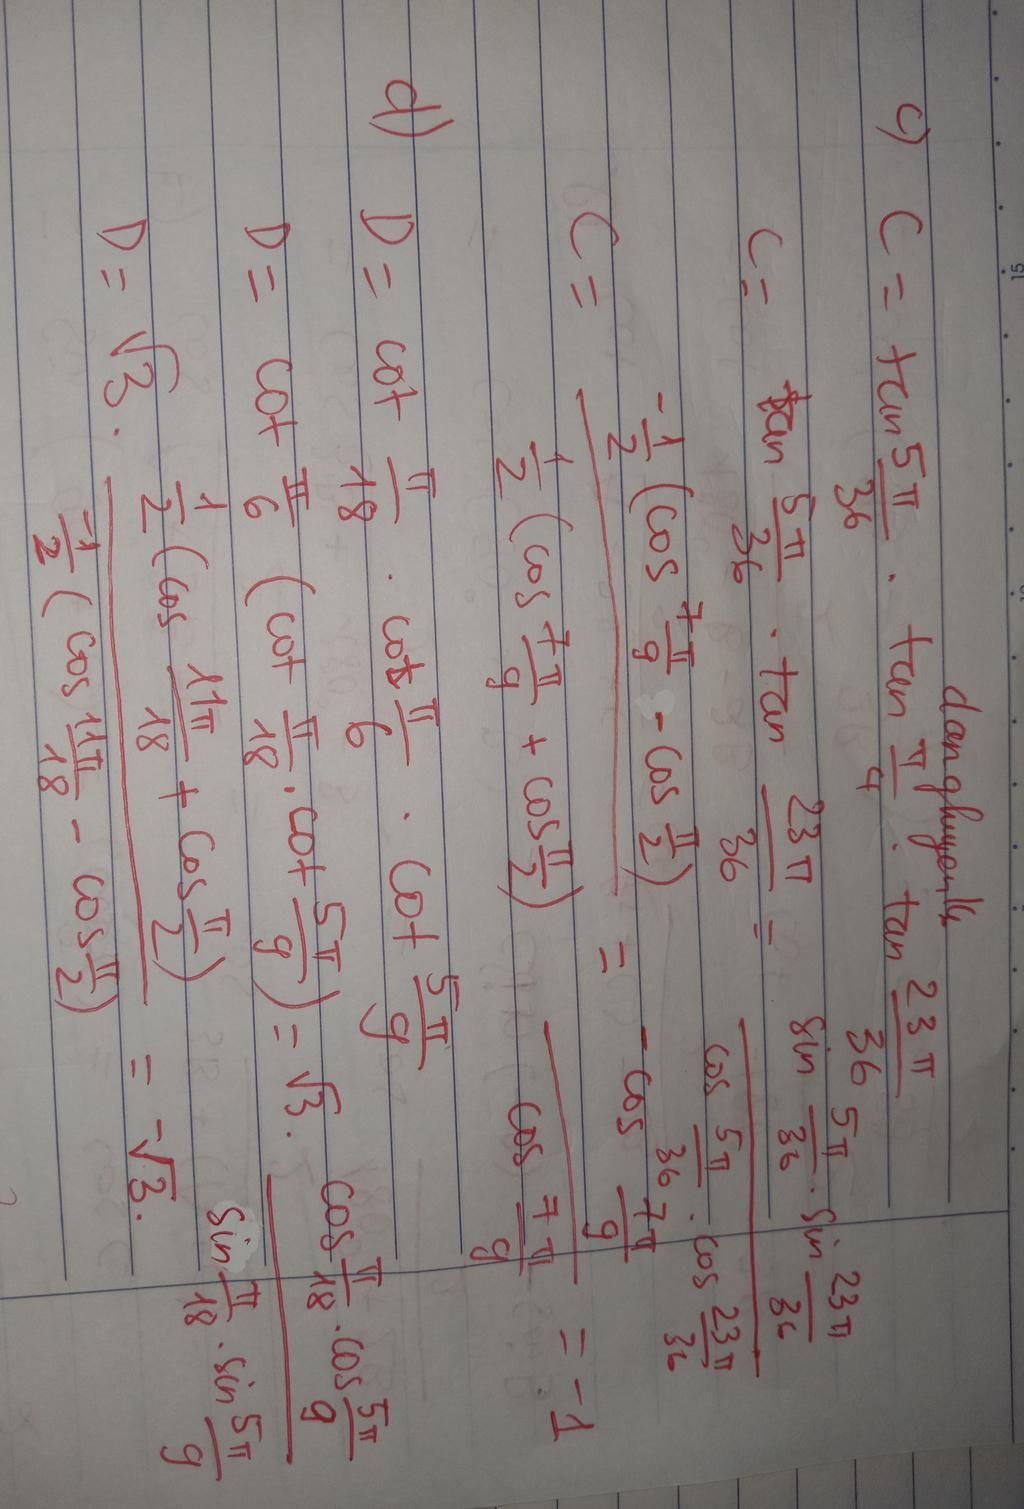 danghuyenth
c) C = tan 5π/36 . tan π/4 . tan 23π/36
C = tan 5π/36 . tan 23π/36 = (sin 5π/36 . sin 23π/36)/(cos 5π/36 . cos 23π/36)
C = (-1/2 (cos 7π/9 - cos π/2))/(1/2 (cos 7π/9 + cos π/2)) = (-cos 7π/9)/(cos 7π/9) = -1
d) D = cot π/18 . cot π/6 . cot 5π/9
D = cot π/6 (cot π/18 . cot 5π/9) = √3 . (cos π/18 . cos 5π/9)/(sin π/18 . sin 5π/9)
D = √3 . (1/2 (cos 11π/18 + cos π/2))/(-1/2 (cos 11π/18 - cos π/2)) = -√3.
15